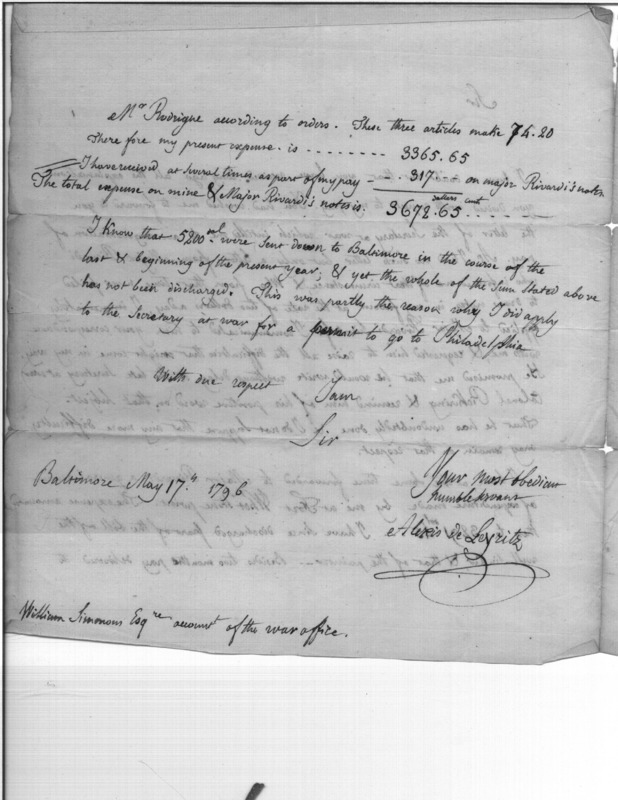 Mr Rodrigue according to orders. These three articles make 74.20
There fore my present expense is - - - - - - - - 3365.65
I have received at Several times as part of my pay - - . 317 - - - on major Rivardi's notes
The total expense on mine & Major Rivardi's notes is. 3672.65 - - - -
dollars cents
I Know that 5200 were Sent down to Baltimore in the course of the
last & beginning of the present year, & yet the whole of the Sum Stated above
has not been discharged. This was partly the reason why I did apply
to the Secretary at war for a permit to go to Philadelphia
With due respect I am
Sir
Your most obedient
humble Servant
Baltimore May 17.th 1796
Alexis de
William Simmons Esqre account of the war office.